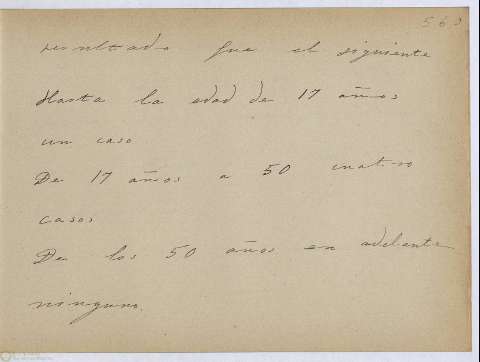 560
resultado fue el siguiente
Hasta la edad de 17 años
un caso
De 17 años a 50 cuatro
casos
De los 50 años en adelante
ninguno.